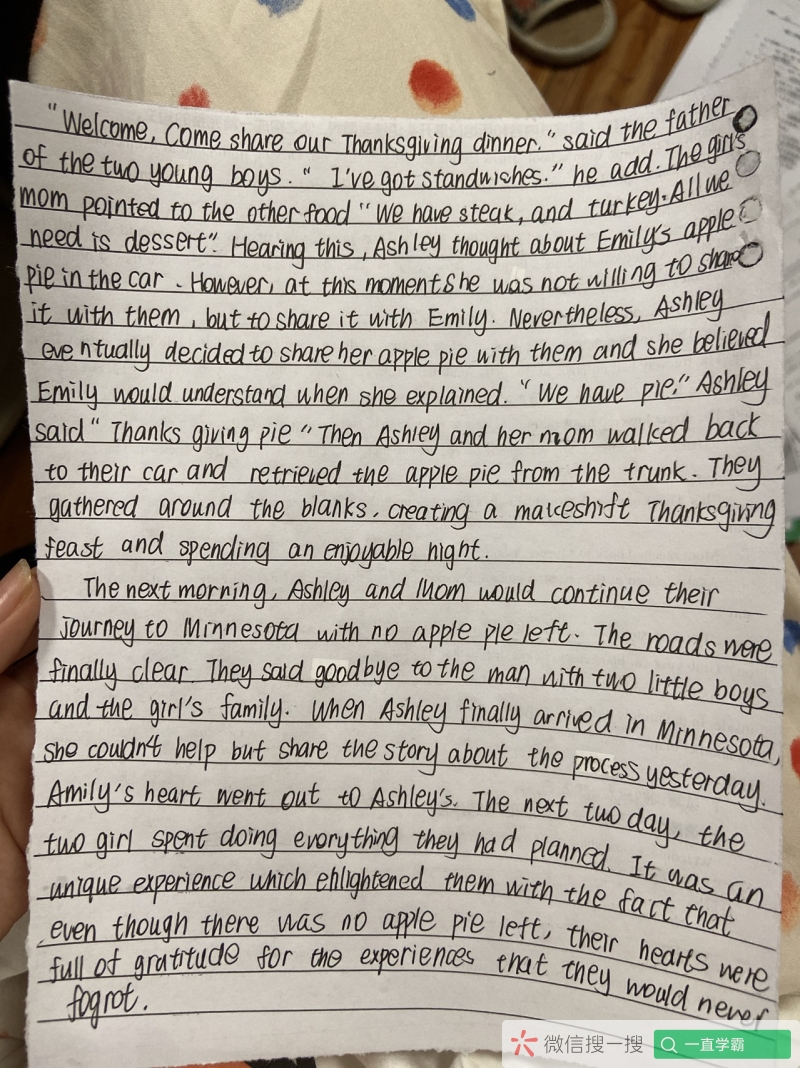 "Welcome, Come share our Thanksgiving dinner." said the father
of the two young boys. " I've got standwiches." he add. The girl's
mom pointed to the other food "We have steak, and turkey. All we
need is dessert". Hearing this, Ashley thought about Emily's apple
pie in the car. However, at this moment she was not willing to share
it with them, but to share it with Emily. Nevertheless, Ashley
eventually decided to share her apple pie with them and she believed
Emily would understand when she explained. "We have pie." Ashley
said " Thanks giving pie " Then Ashley and her mom walked back
to their car and retrieved the apple pie from the trunk. They
gathered around the blanks, creating a makeshift Thanksgiving
feast and spending an enjoyable night.
The next morning, Ashley and Mom would continue their
journey to Minnesota with no apple pie left. The roads were
finally clear. They said goodbye to the man with two little boys
and the girl's family. When Ashley finally arrived in Minnesota,
she couldn't help but share the story about the process yesterday.
Amily's heart went out to Ashley's. The next two day, the
two girl spent doing everything they had planned. It was an
unique experience which enlightened them with the fact that
even though there was no apple pie left, their hearts were
full of gratitude for the experiences that they would never
fogrot.
微信搜一搜 一直学霸